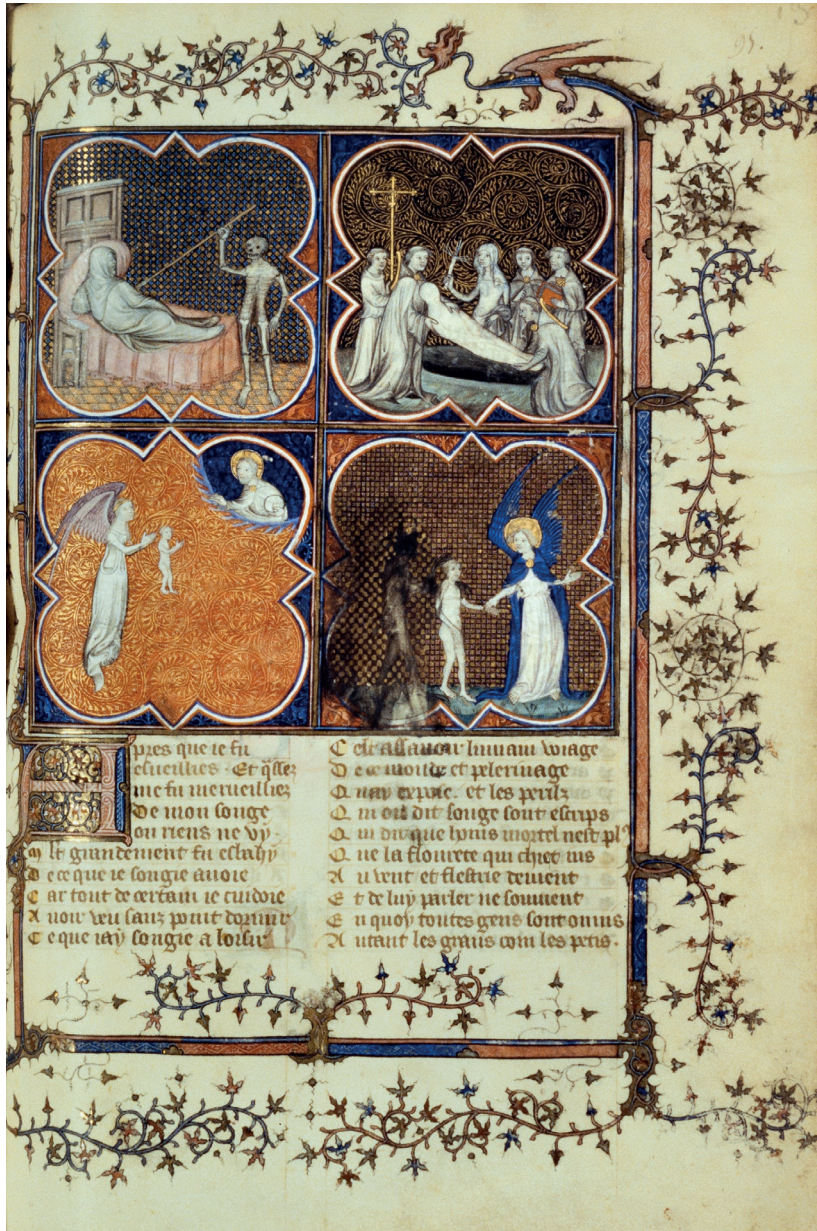 95.
Apres que ie fu
esueillies. Et q̃ssez
me fu merueilliez
De mon songe
ou riens ne vy.
M lt grandement fu esbahy
D e ce que ie songie auoie
C ar tout de certain ie cuidoie
A uoir veu sanz point dormir
C e que iay songie a loisir
C est assauoir luiuam voiage
D e ce monde et pelerinage
Q uay expose. et les perilz
Q ui ou dit songe sont escrips
Q ui dit que homs mortel nest pl'
Q ue la flourete qui chiet ius
A u vent et flestrie deuient
E t de luy parler ne souuient
E n quoy toutes gens sont onnis
A utant les grans com les petis.